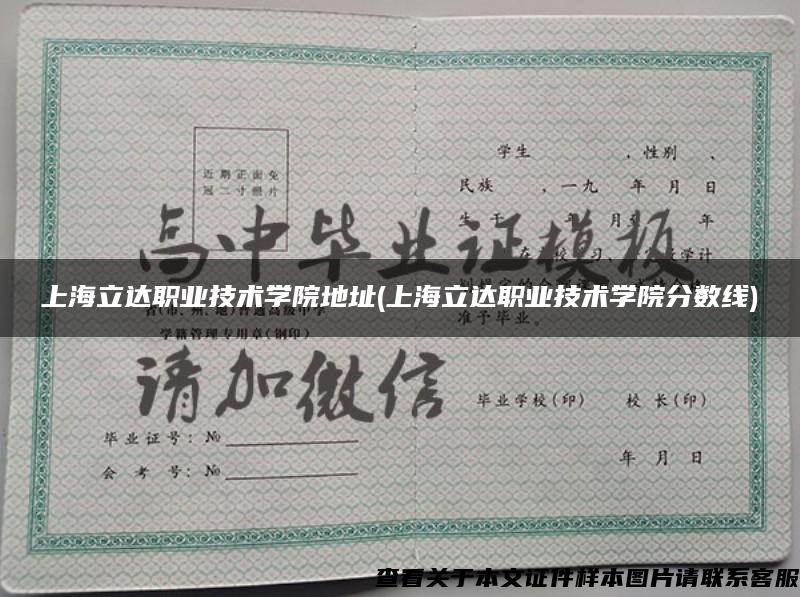 学生 ，性别 、
近期正面免
冠二寸照片
民族 ，一九 年 月 日
高中毕业证模板
上海立达职业技术学院地址(上海立达职业技术学院分数线)
准予毕业。
学籍管理专用章(钢印)
请加微信
毕业学校(印) 校长(印)
毕业证号：№
会考号：№
年 月 日
查看关于本文证件样本图片请联系客服